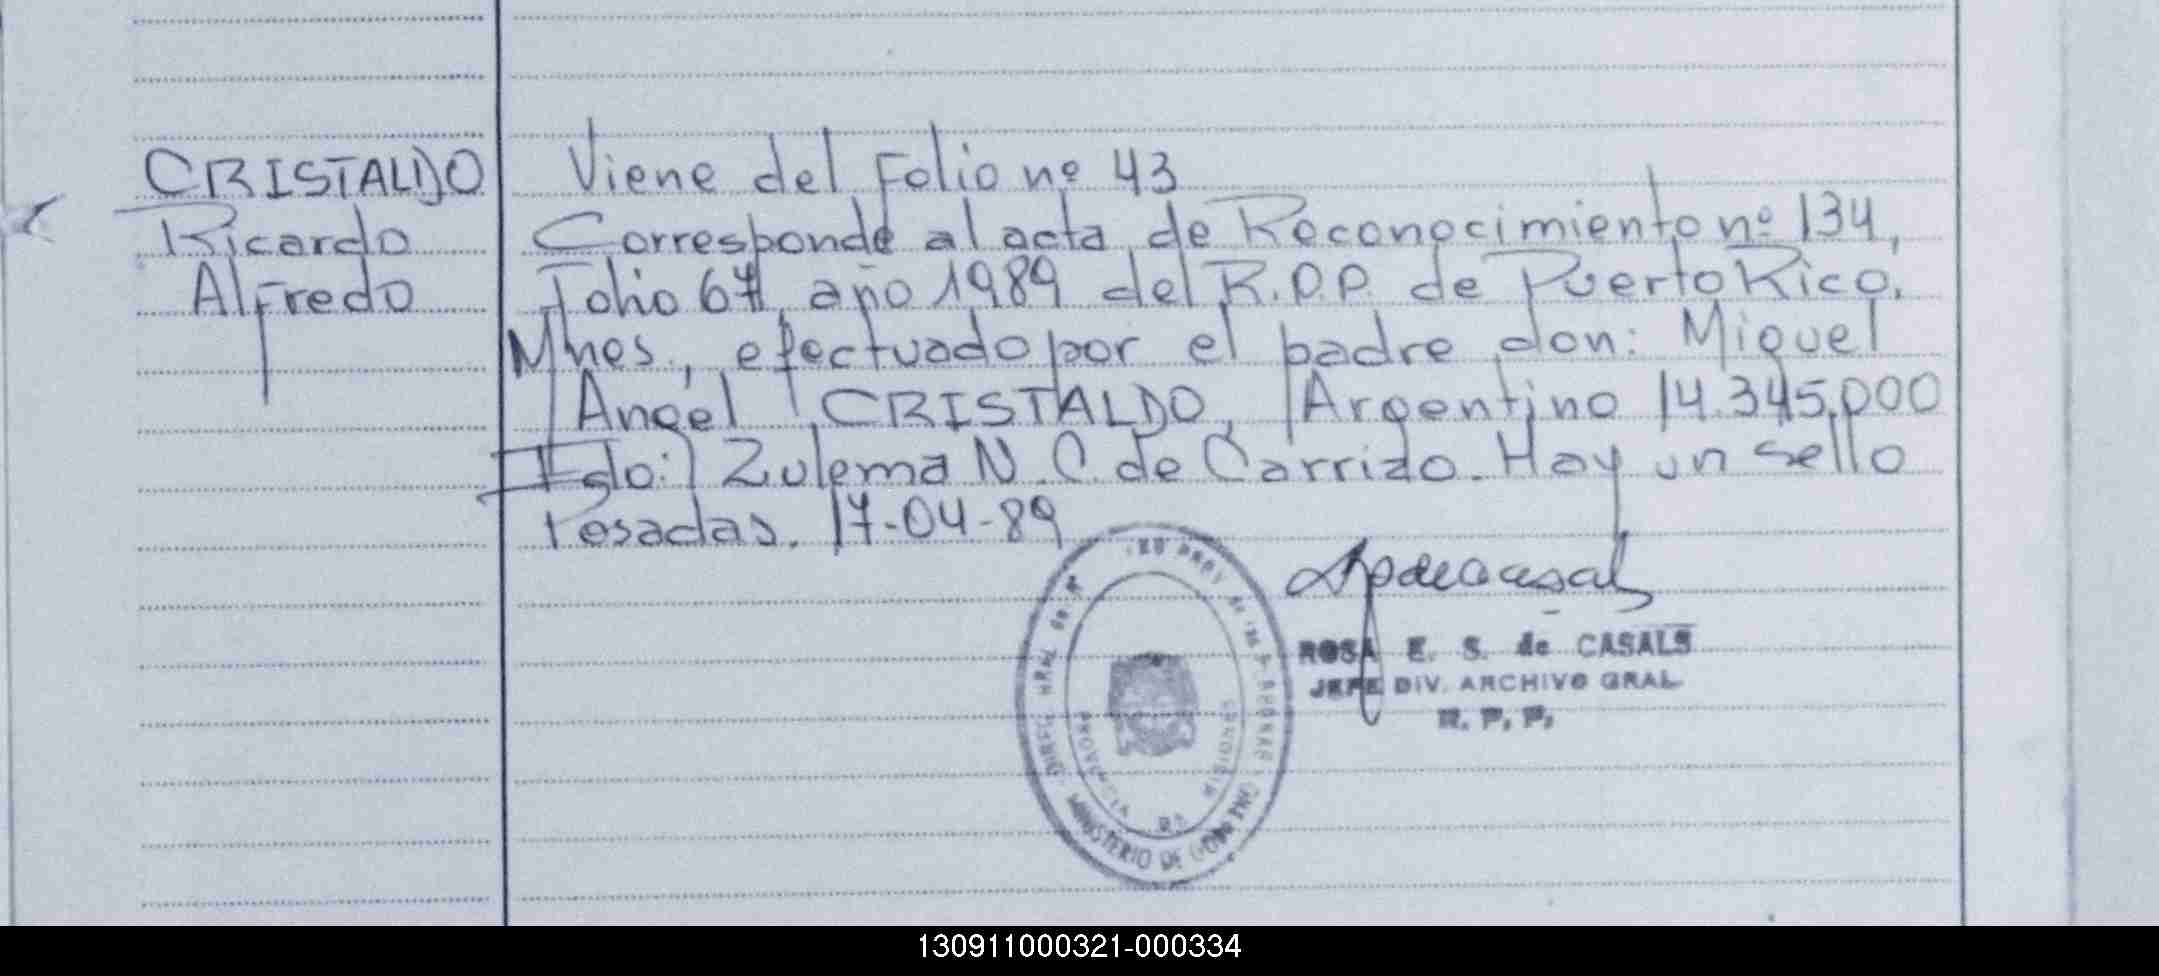 CRISTALDO
Ricardo
Alfredo
Viene del Folio nº 43
Corresponde al acta de Reconocimiento nº 134,
Folio 67, año 1989 del R.P.P. de Puerto Rico,
Mnes, efectuado por el padre don: Miguel
Angel CRISTALDO, Argentino 14.345.000
Fdo: Zulema N. C. de Carrizo. Hay un sello
Posadas. 17-04-89
ROSA E. S. de CASALS
JEFE DIV. ARCHIVO GRAL
R. P. P.
MINISTERIO DE
130911000321-000334